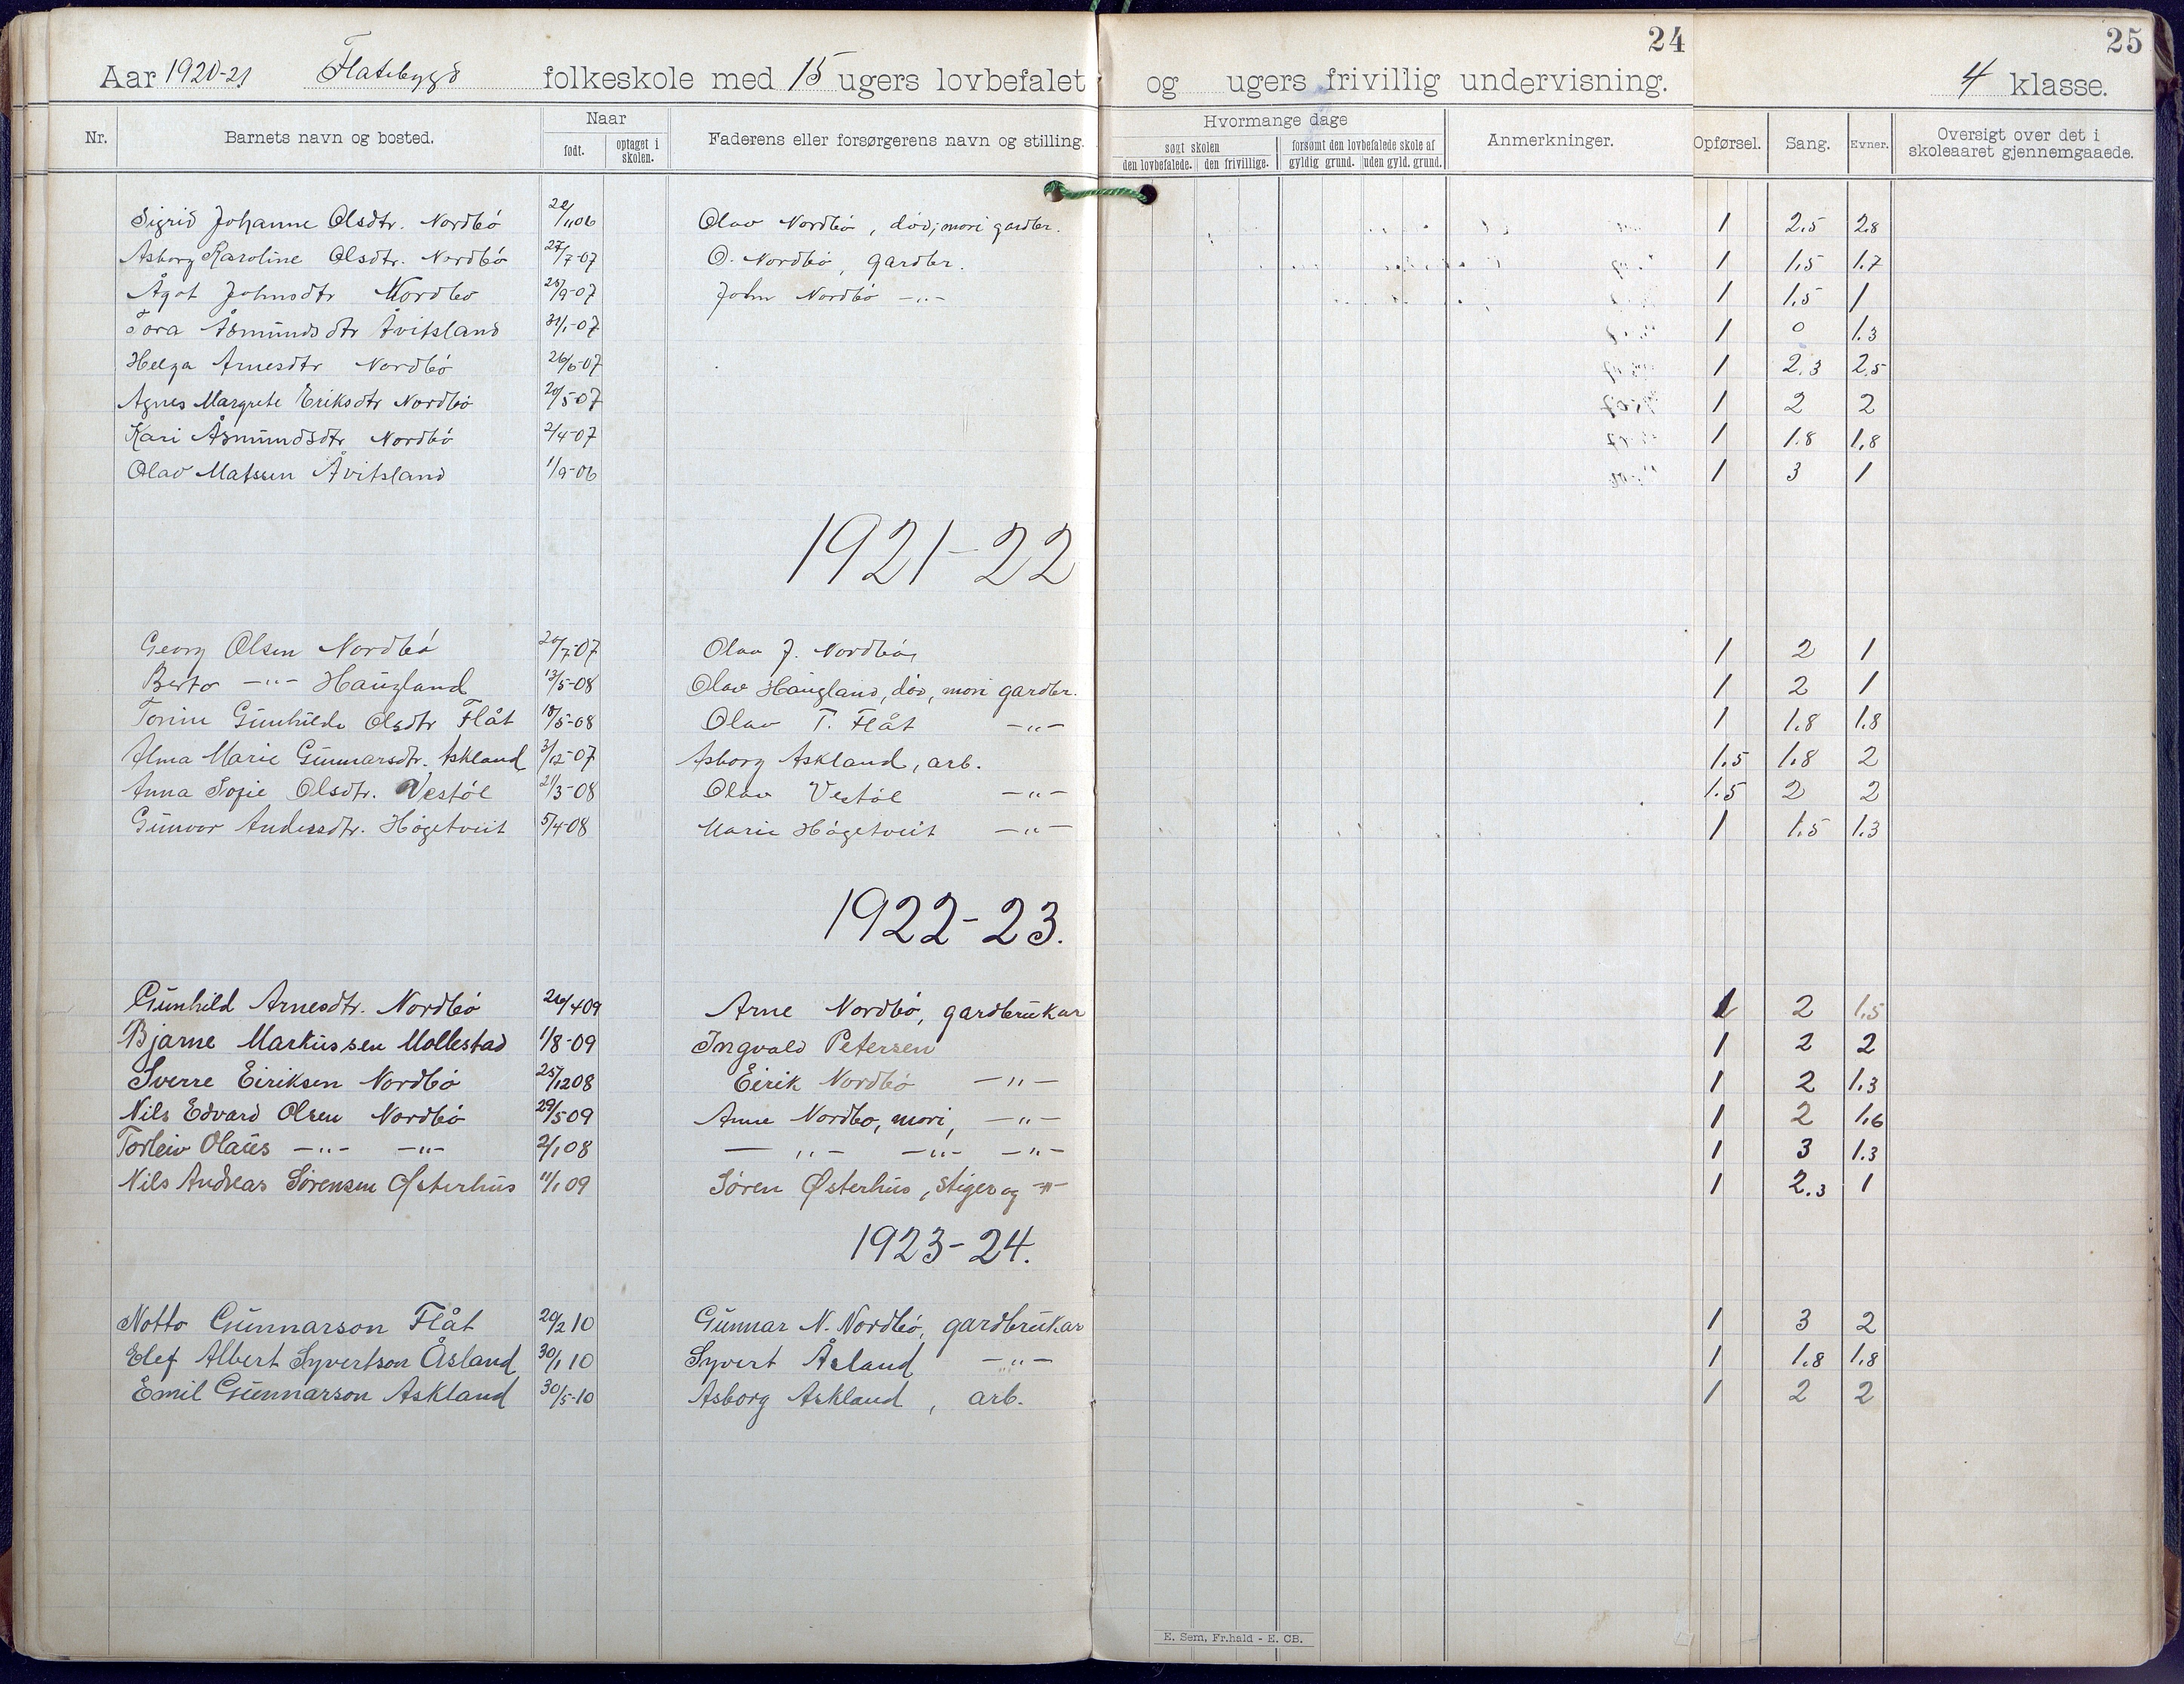 24
25
Aar 1920-21 Flatebygd folkeskole med 15 ugers lovbefalet og ugers frivillig undervisning. 4 klasse.
Nr. Barnets navn og bosted. Naar født. optaget i skolen. Faderens eller forsørgerens navn og stilling. Hvormange dage søgt skolen den lovbefalede. den frivillige. forsømt den lovbefalede skole af gyldig grund. uden gyld. grund. Anmerkninger. Opførsel. Sang. Evner. Oversigt over det i skoleaaret gjennemgaaede.
Sigrid Johanne Olsdtr. Nordbö /11 06 Olav Nordbö, död, mori gardbr. 1 2.5 2.8
Asborg Karoline Olsdtr. Nordbö 27/7-07 O. Nordbö, gardbr. 1 1,5 1.7
Ågot Johnsdtr Nordbö 25/9-07 John Nordbö -"- 1 1,5 1
Tora Åsmundsdtr Åvitsland 31/1-07 1 0 1.3
Helga Arnesdtr Nordbö 26/6-07 1 2.3 2.5
Agnes Margrete Eriksdtr Nordbö 20/5-07 1 2 2
Kari Åsmundsdtr Nordbö 2/4-07 1 1.8 1,8
Olav Matssen Åvitsland 1/9-06 1 3 1
1921-22
Georg Olsen Nordbö 20/7-07 Olav J. Nordbö, 1 2 1
Berto -"- Haugland 13/5-08 Olav Haugland, död, mori gardbr. 1 2 1
Torine Gunhilde Olsdtr Flåt 18/5-08 Olav T. Flåt -"- 1 1.8 1.8
Alma Marie Gunnarsdtr. Askland 3/12-07 Asborg Askland, arb. 1.5 1.8 2
Anna Sofie Olsdtr. Vestöl 21/3-08 Olav Vestöl -"- 1.5 2 2
Gunvor Andersdtr. Högetveit 5/4-08 Marie Högetveit -"- 1 1.5 1.3
1922-23.
Gunhild Arnesdtr. Nordbö 26/4 09 Arne Nordbö, gardbrukar 1 2 1,5
Bjarne Markussen Mollestad 1/8-09 Ingvald Petersen 1 2 2
Sverre Eiriksen Nordbö 25/12 08 Eirik Nordbö -"- 1 2 1.3
Nils Edvard Olsen Nordbö 29/5 09 Anne Nordbo, mori, -"- 1 2 1,6
Torleiv Olaüs -"- -"- 2/1 08 -"- -"- -"- 1 3 1.3
Nils Andreas Sørensen Østerhus 11/1 09 Søren Østerhus, stiger og -"- 1 2.3 1
1923-24.
Notto Gunnarson Flåt 20/2 10 Gunnar N. Nordbö, gardbrukar 1 3 2
Elef Albert Syvertson Åsland 30/1 10 Syvert Åsland -"- 1 1.8 1.8
Emil Gunnarson Askland 30/5-10 Asborg Askland, arb. 1 2 2
E. Sem, Fr.hald - E. CB.